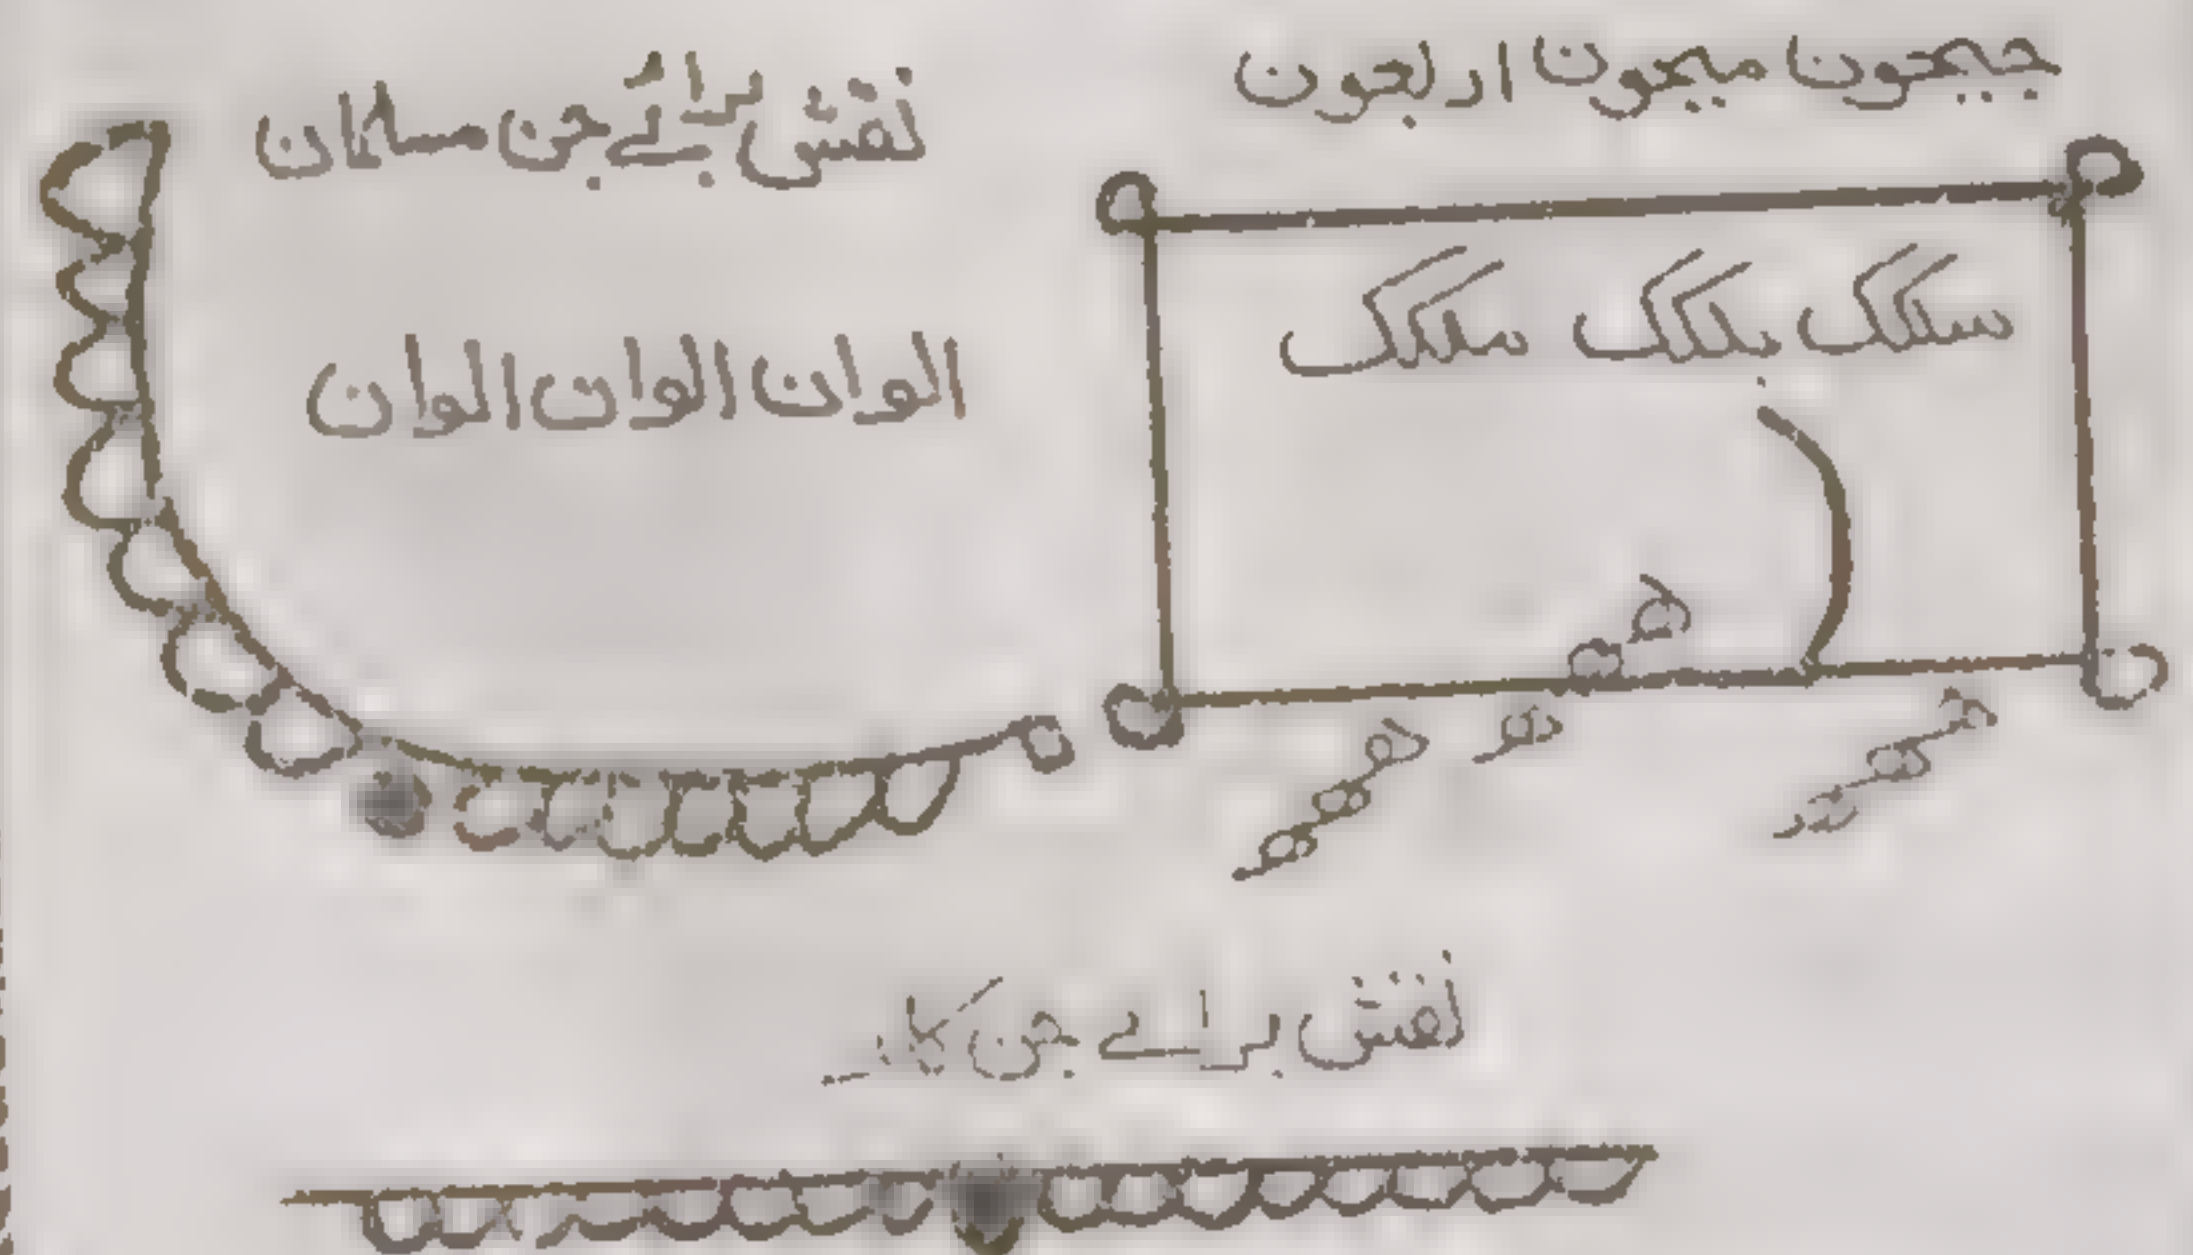 جیحون میحون اربعون
سلکک بلکک ملکک
نقش برائے جن مسلمان
الوان الوان الوان
نقش برائے جن کافر